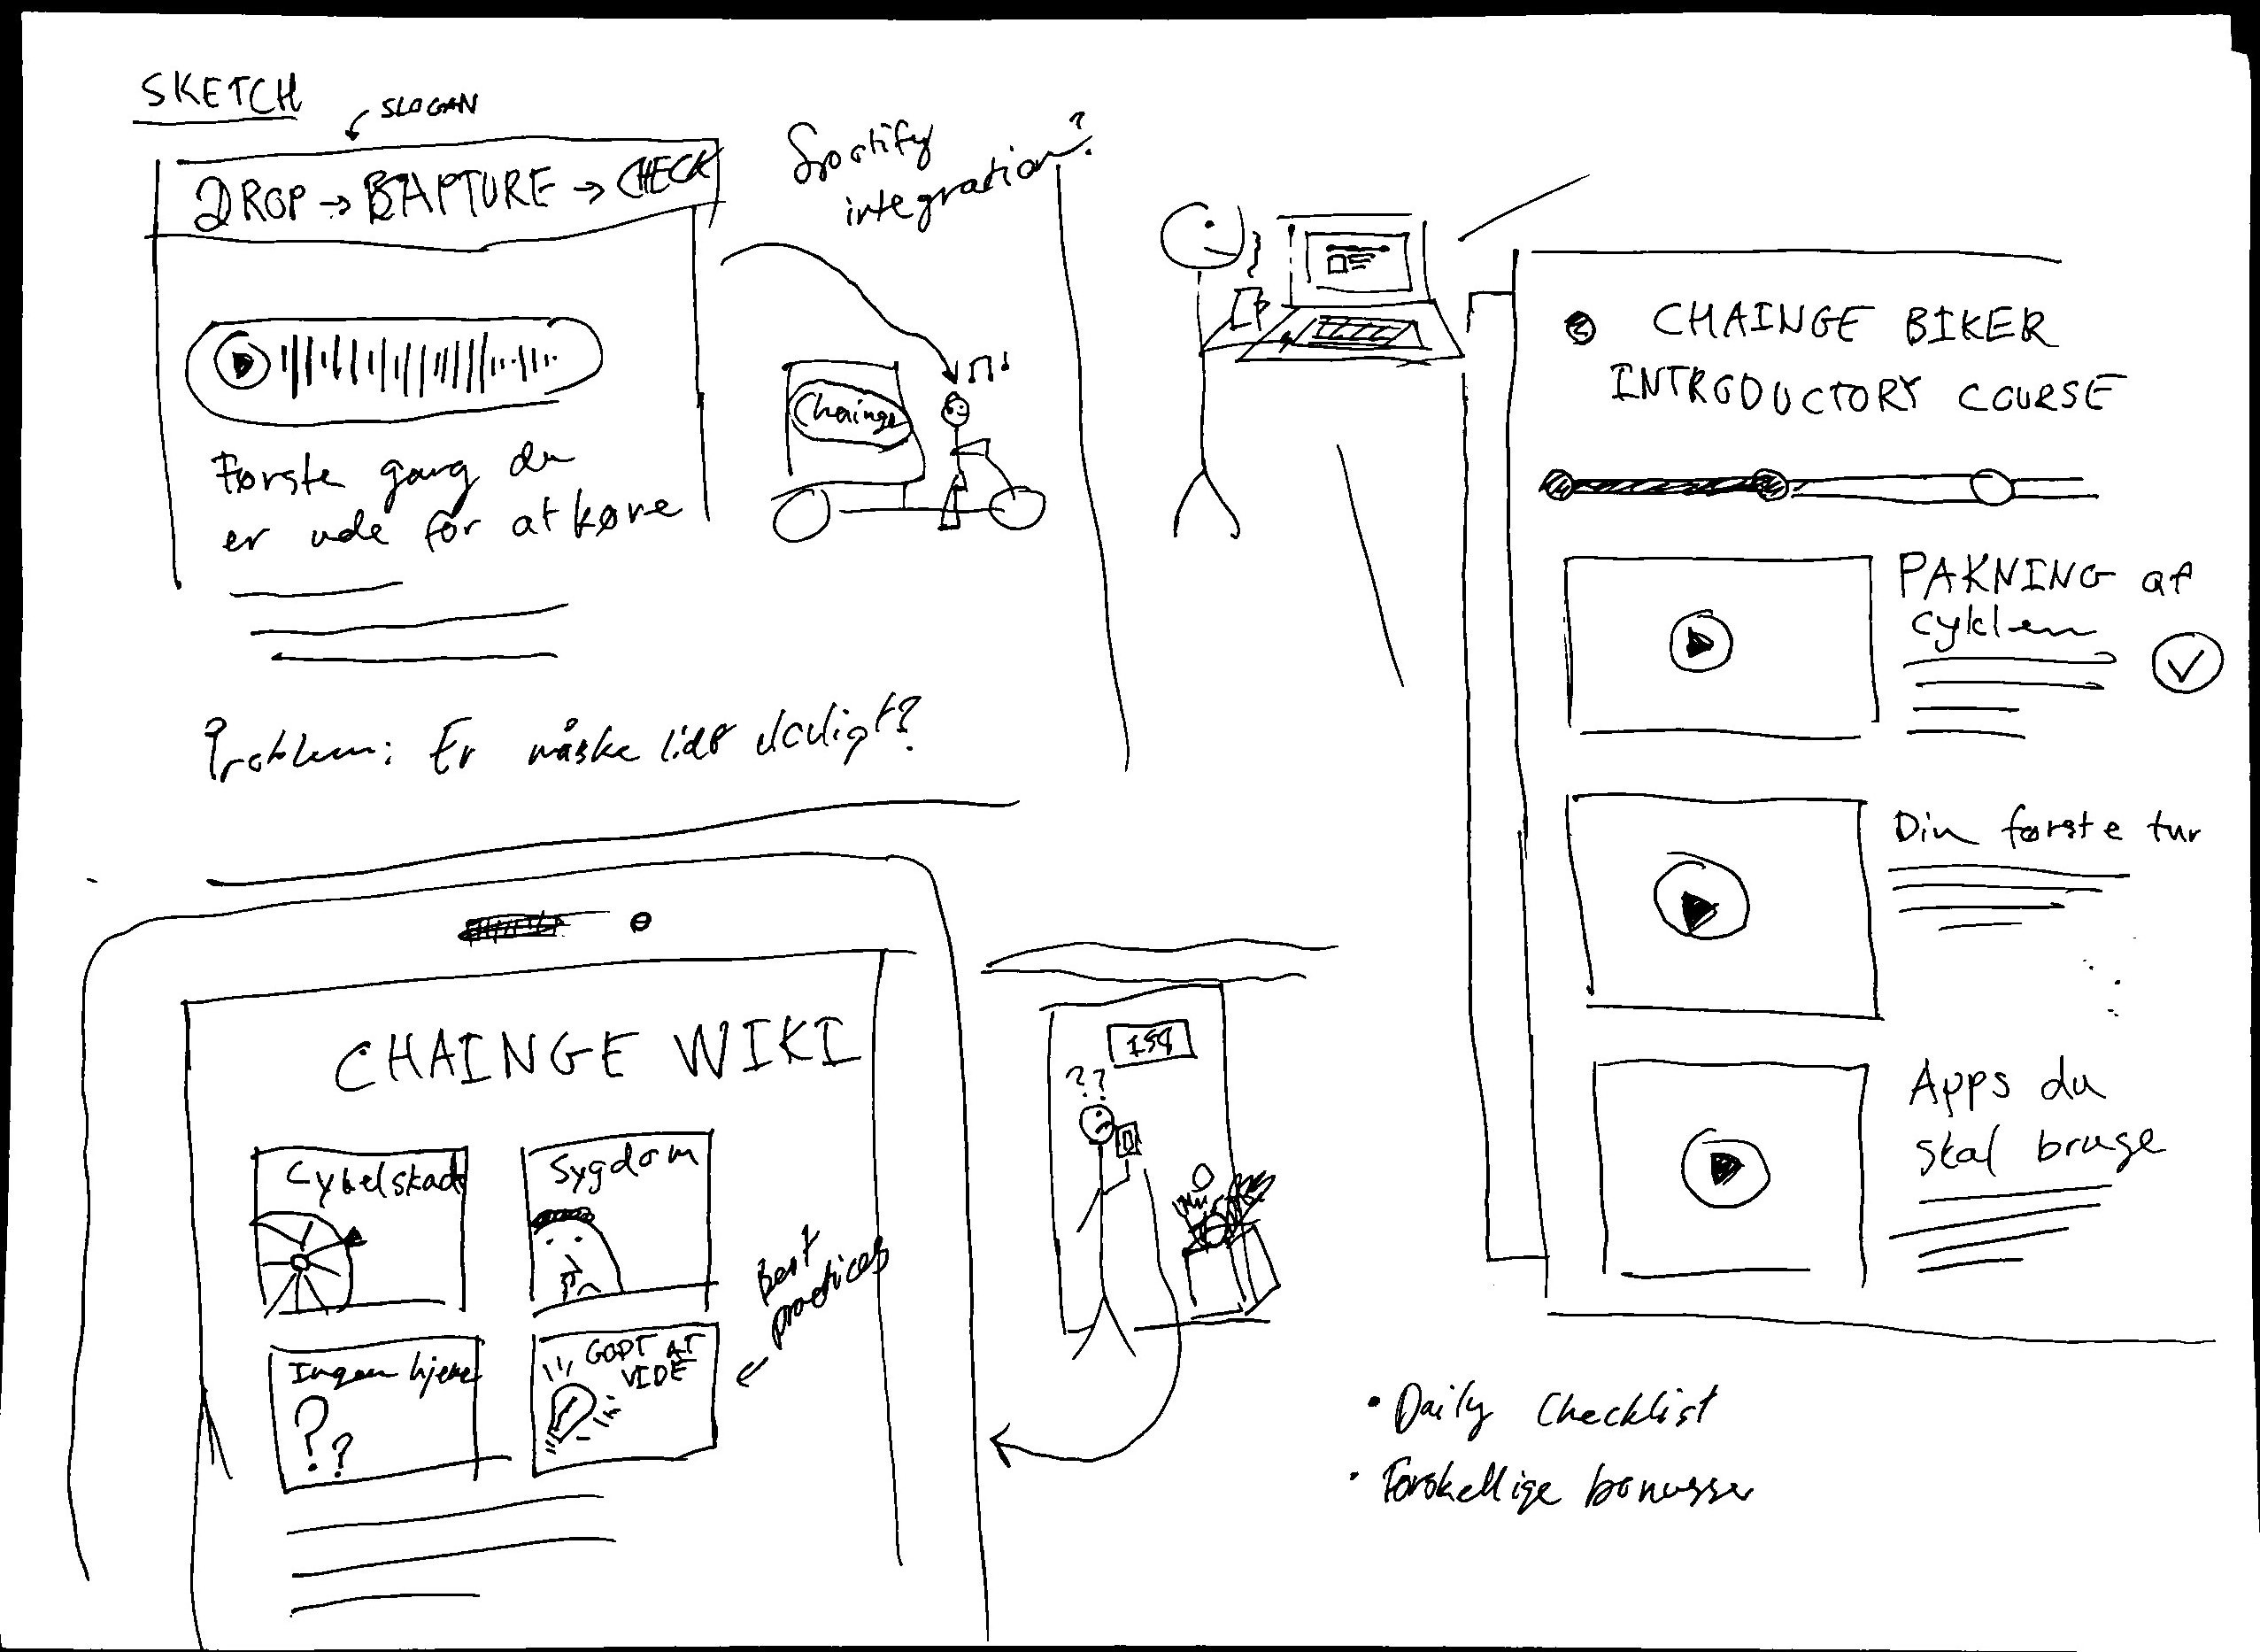 SKETCH
SLOGAN
DROP → BAPTURE → CHECK
Spotify
integration?
Chainge
Første gang du
er ude for at køre
Problem: Er måske lidt dårligt?
CHAINGE BIKER
INTRODUCTORY COURSE
PAKNING af
cyklen
Din første tur
Apps du
skal bruge
CHAINGE WIKI
Cykelskade
Sygdom
Ingen hjemme
??
GODT AT
VIDE
Best
practices
??
• Daily Checklist
• Forskellige bonusser